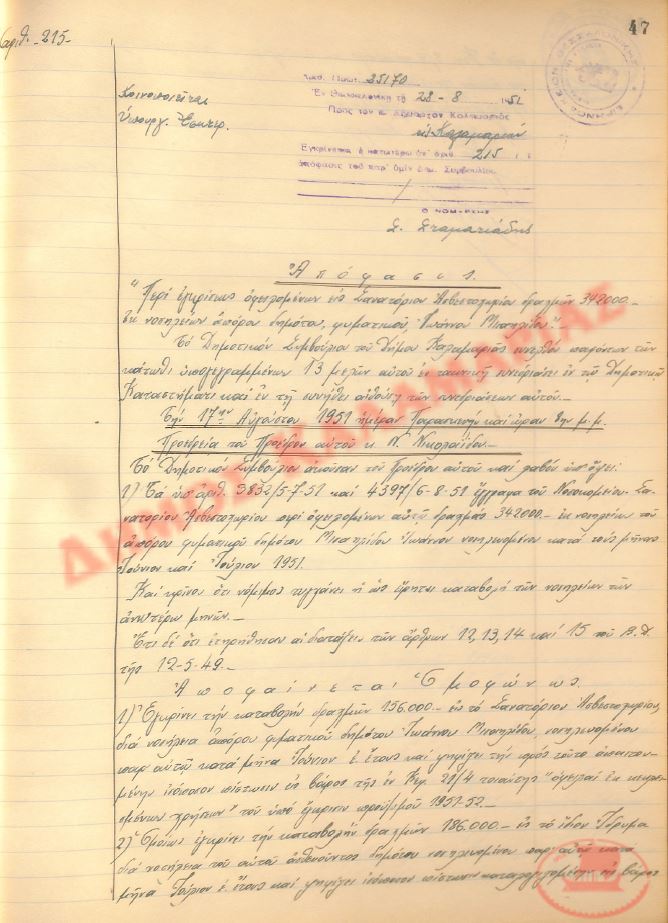 47
αριθ. 215.-
Κοινοποιείται
Υπουργ. Εσωτερ.
25170
Εν Θεσσαλονίκη τη 28-8 1951
Προς τον κ. Δήμαρχον Καλαμαριάς
εις Καλαμαριάν
Εγκρίνεται η κατωτέρω υπ' αριθ. 215
απόφασις του παρ' υμίν Δημ. Συμβουλίου.
Ο ΝΟΜΑΡΧΗΣ
Σ. Σταματιάδης
Ἀπόφασις.
"Περί ἐγκρίσεως ὀφειλομένων εἰς Σανατόριον Ἀσβεστοχωρίου δραχμῶν 342000.-
ἐκ νοσηλείων ἀπόρου δημότου, φυματικοῦ, Ἰωάννου Μπαηλίδου".-
Τό Δημοτικόν Συμβούλιον τοῦ Δήμου Καλαμαριᾶς συνελθόν παρόντων τῶν
κάτωθι ὑπογεγραμμένων 13 μελῶν αὐτοῦ ἐν τακτικῇ συνεδριάσει ἐν τῷ Δημοτικῷ
Καταστήματι καί ἐν τῇ συνήθει αἰθούσῃ τῶν συνεδριάσεων αὐτοῦ.-
Τήν 17ην Αὐγούστου 1951 ἡμέραν Παρασκευήν καί ὥραν 8ην μ.μ.
Προεδρεία τοῦ Προέδρου αὐτοῦ κ. Ν. Νικολαΐδου.-
Τό Δημοτικόν Συμβούλιον ἀκοῦσαν τοῦ Προέδρου αὐτοῦ καί λαβόν ὑπ' ὄψει:
1) Τά ὑπ' ἀριθ. 3832/5-7-51 καί 4397/6-8-51 ἔγγραφα τοῦ Νοσοκομείου-Σα-
νατορίου Ἀσβεστοχωρίου περί ὀφειλομένων αὐτῷ δραχμάς 342000.- ἐκ νοσηλείων τοῦ
ἀπόρου φυματικοῦ δημότου Μπαηλίδου Ἰωάννου νοσηλευομένου κατά τούς μῆνας
Ἰούνιον καί Ἰούλιον 1951.
Καί κρῖνον ὅτι νόμιμος τυγχάνει ἡ ὡς εἴρηται καταβολή τῶν νοσηλείων τῶν
ἀνωτέρω μηνῶν.-
Ἔτι δέ ὅτι ἐτηρήθησαν αἱ διατάξεις τῶν ἄρθρων 12, 13, 14 καί 15 τοῦ Β.Δ.
τῆς 12-5-49.-
Ἀποφαίνεται Ὁμοφώνως.
1) Ἐγκρίνει τήν καταβολήν δραχμῶν 156.000.- εἰς τό Σανατόριον Ἀσβεστοχωρίου,
διά νοσήλεια ἀπόρου φυματικοῦ δημότου Ἰωάννου Μπαηλίδου, νοσηλευομένου
παρ' αὐτῷ κατά μῆνα Ἰούνιον ἐ. ἔτους καί ψηφίζει τήν πρός τοῦτο ἀπαιτου-
μένην ἰσόποσον πίστωσιν εἰς βάρος τῆς ἐν Κεφ. 21/4 τοιαύτης "ὀφειλαί ἐκ κεκλει-
σμένων χρήσεων" τοῦ ὑπό ἔγκρισιν προϋπ/σμοῦ 1951-52.-
2) Ὁμοίως ἐγκρίνει τήν καταβολήν δραχμῶν 186.000.- εἰς τό ἴδιον Ἵδρυμα
διά νοσήλεια τοῦ αὐτοῦ ἀσθενοῦντος δημότου νοσηλευομένου παρ' αὐτῷ κατά
μῆνα Ἰούλιον ἐ. ἔτους καί ψηφίζει ἰσόποσον πίστωσιν εἰς βάρος
ΔΗΜΟΣ ΚΑΛΑΜΑΡΙΑΣ